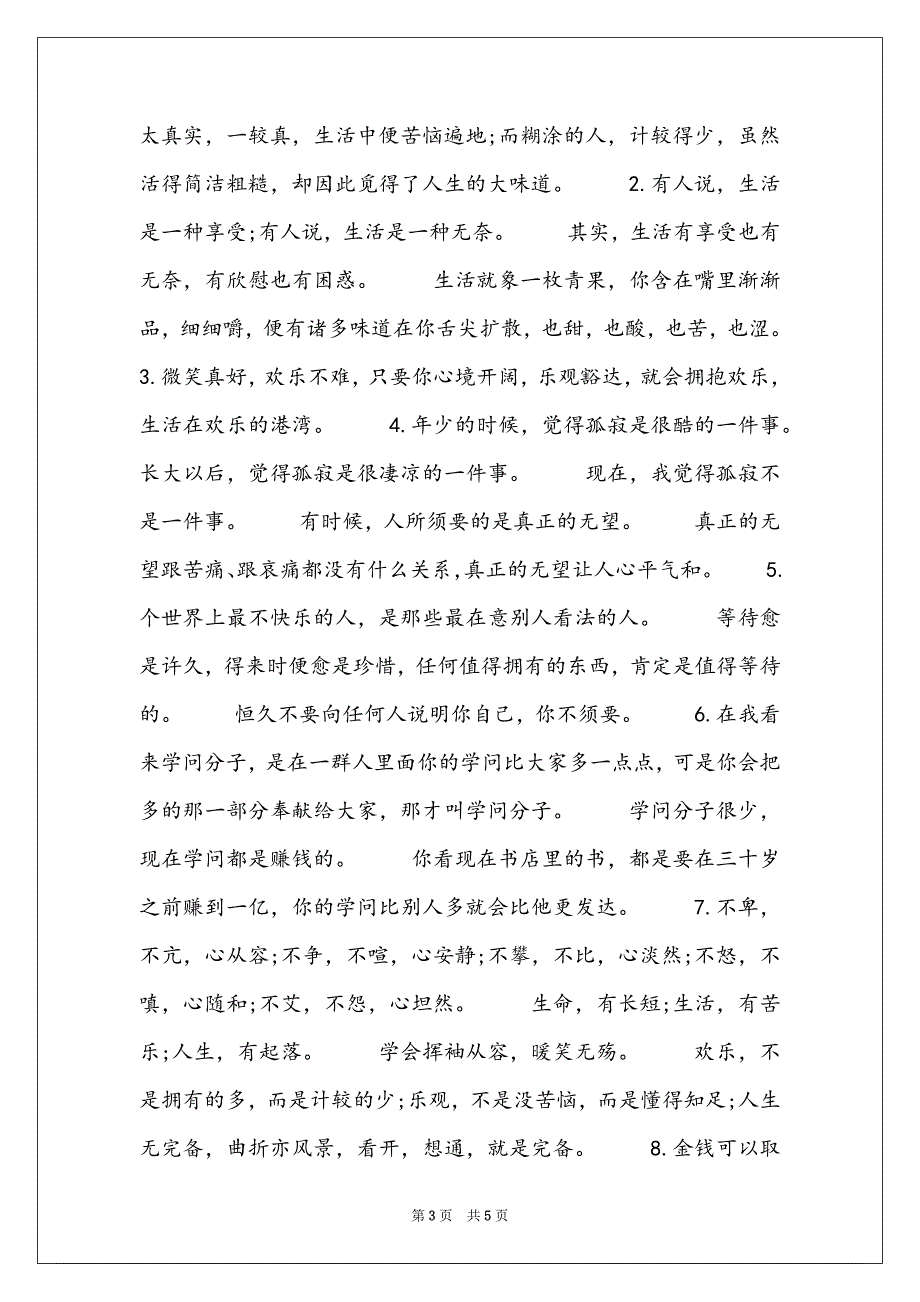 太真实，一较真，生活中便苦恼遍地;而糊涂的人，计较得少，虽然
活得简洁粗糙，却因此觅得了人生的大味道。 2.有人说，生活
是一种享受;有人说，生活是一种无奈。 其实，生活有享受也有
无奈，有欣慰也有困惑。 生活就象一枚青果，你含在嘴里渐渐
品，细细嚼，便有诸多味道在你舌尖扩散，也甜，也酸，也苦，也涩。
3.微笑真好，欢乐不难，只要你心境开阔，乐观豁达，就会拥抱欢乐，
生活在欢乐的港湾。 4.年少的时候，觉得孤寂是很酷的一件事。
长大以后，觉得孤寂是很凄凉的一件事。 现在，我觉得孤寂不
是一件事。 有时候，人所须要的是真正的无望。 真正的无
望跟苦痛、跟哀痛都没有什么关系,真正的无望让人心平气和。 5.
个世界上最不快乐的人，是那些最在意别人看法的人。 等待愈
是许久，得来时便愈是珍惜，任何值得拥有的东西，肯定是值得等待
的。 恒久不要向任何人说明你自己，你不须要。 6.在我看
来学问分子，是在一群人里面你的学问比大家多一点点，可是你会把
多的那一部分奉献给大家，那才叫学问分子。 学问分子很少，
现在学问都是赚钱的。 你看现在书店里的书，都是要在三十岁
之前赚到一亿，你的学问比别人多就会比他更发达。 7.不卑，
不亢，心从容;不争，不喧，心安静;不攀，不比，心淡然;不怒，不
嗔，心随和;不艾，不怨，心坦然。 生命，有长短;生活，有苦
乐;人生，有起落。 学会挥袖从容，暖笑无殇。 欢乐，不
是拥有的多，而是计较的少;乐观，不是没苦恼，而是懂得知足;人生
无完备，曲折亦风景，看开，想通，就是完备。 8.金钱可以取
第 3 页 共 5 页